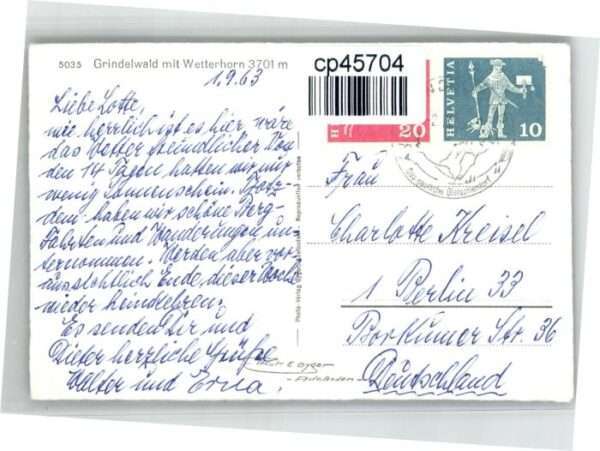 5035 Grindelwald mit Wetterhorn 3701 m
cp45704
1.9.63
Liebe Lotte,
wie herrlich ist es hier, wäre
das Wetter freundlicher. Von
den 14 Tagen hatten wir nur
wenig Sonnenschein. Trotz-
dem haben wir schöne Berg-
Fahrten und Wanderungen un-
ternommen. Werden aber vor-
aussichtlich Ende dieser Woche
wieder heimkehren.
Es senden Dir und
Dieter herzliche Grüße
Walter und Erna.
H
20
HELVETIA
10
Frau
Charlotte Kreisel
1 Berlin 33
Borkumer Str. 36
Deutschland
Reproduktion verboten